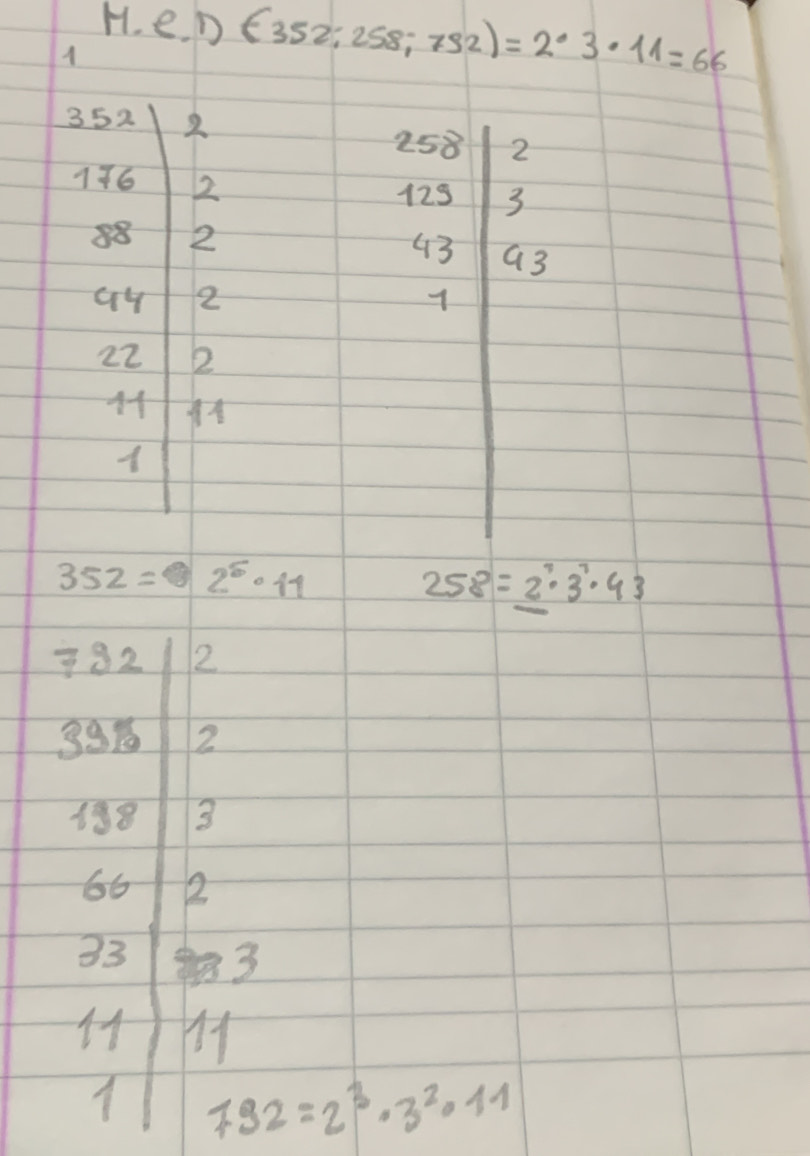 M.C.D (352; 258; 792) = 2 · 3 · 11 = 66
1
352 | 2
176 | 2
88 | 2
44 | 2
22 | 2
11 | 11
1
258 | 2
129 | 3
43 | 43
1
352 = 2⁵ · 11
258 = 2¹ · 3¹ · 43
792 | 2
396 | 2
198 | 3
66 | 2
33 | 3
11 | 11
1
792 = 2³ · 3² · 11